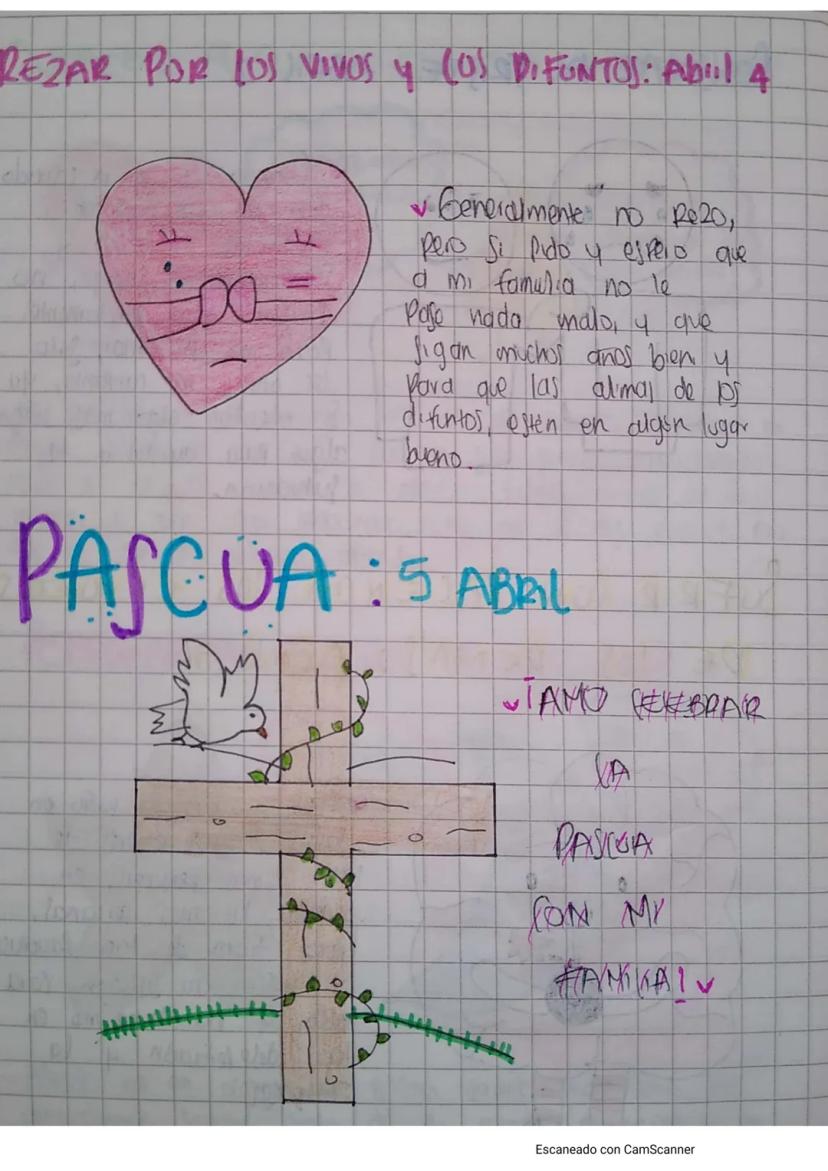 REZAR POR LOS VIVOS Y LOS DIFUNTOS: Abril 4
Generalmente no Rezo,
pero si pido y espero que
a mi familia no le
Pase nada malo, y que
sigan muchos años bien y
Para que las almas de los
difuntos, estén en algún lugar
bueno.
PASCUA : 5 ABRIL
¡AMO CELEBRAR
LA
PASCUA
CON MI
FAMILIA!
Escaneado con CamScanner